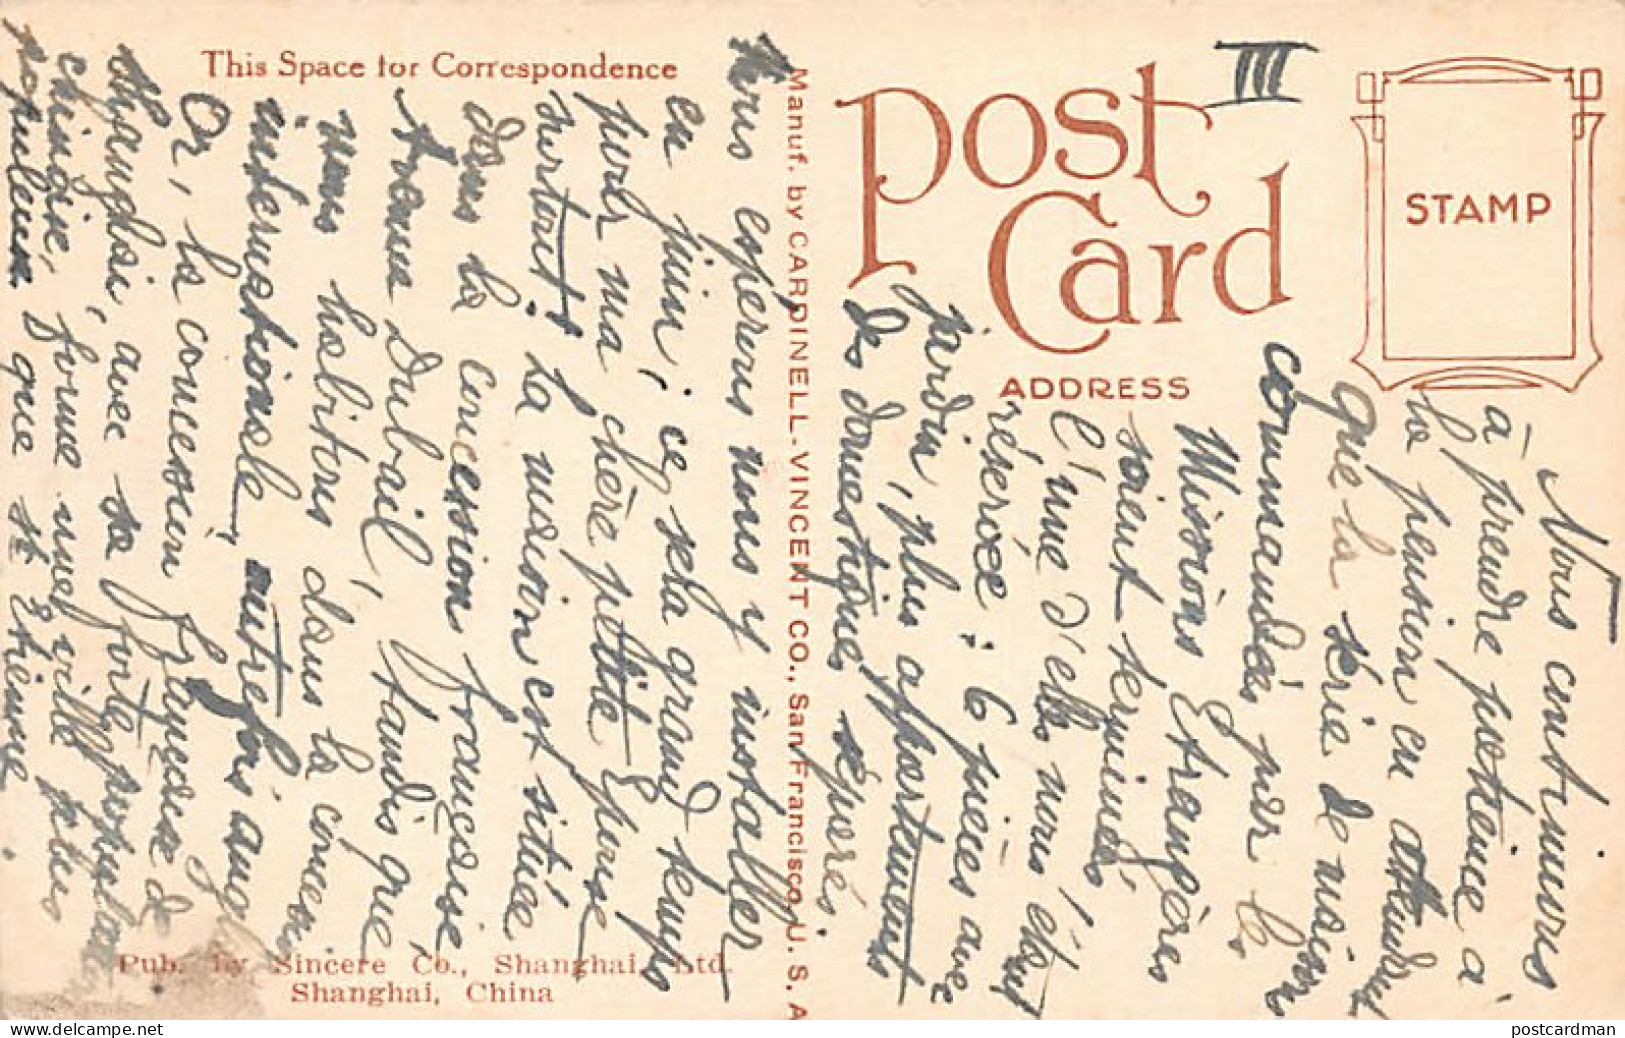 III
This Space for Correspondence
Post Card
STAMP
ADDRESS
Manuf. by CARDINELL-VINCENT CO., San Francisco, U. S. A
Pub. by Sincere Co., Shanghai, Ltd.
Shanghai, China
Nous continuons
à prendre patience à
la pension en attendant
que la série de maisons
commandées par les
Missions Etrangères
soient terminées
l'une d'elles nous étant
réservée : 6 pièces avec
jardin, plus appartements
des domestiques séparés.
Nous espérons nous y installer
en juin ; ce sera grand temps
pour ma chère petite épouse
surtout. La maison est située
dans la concession française
Avenue Dubail, tandis que
nous habitons dans la concession
internationale, autrefois anglaise
Or, la concession française de
Shanghai, avec sa forte population
chinoise, forme une ville plus
populeuse que St Etienne.
delcampe.net
postcardman